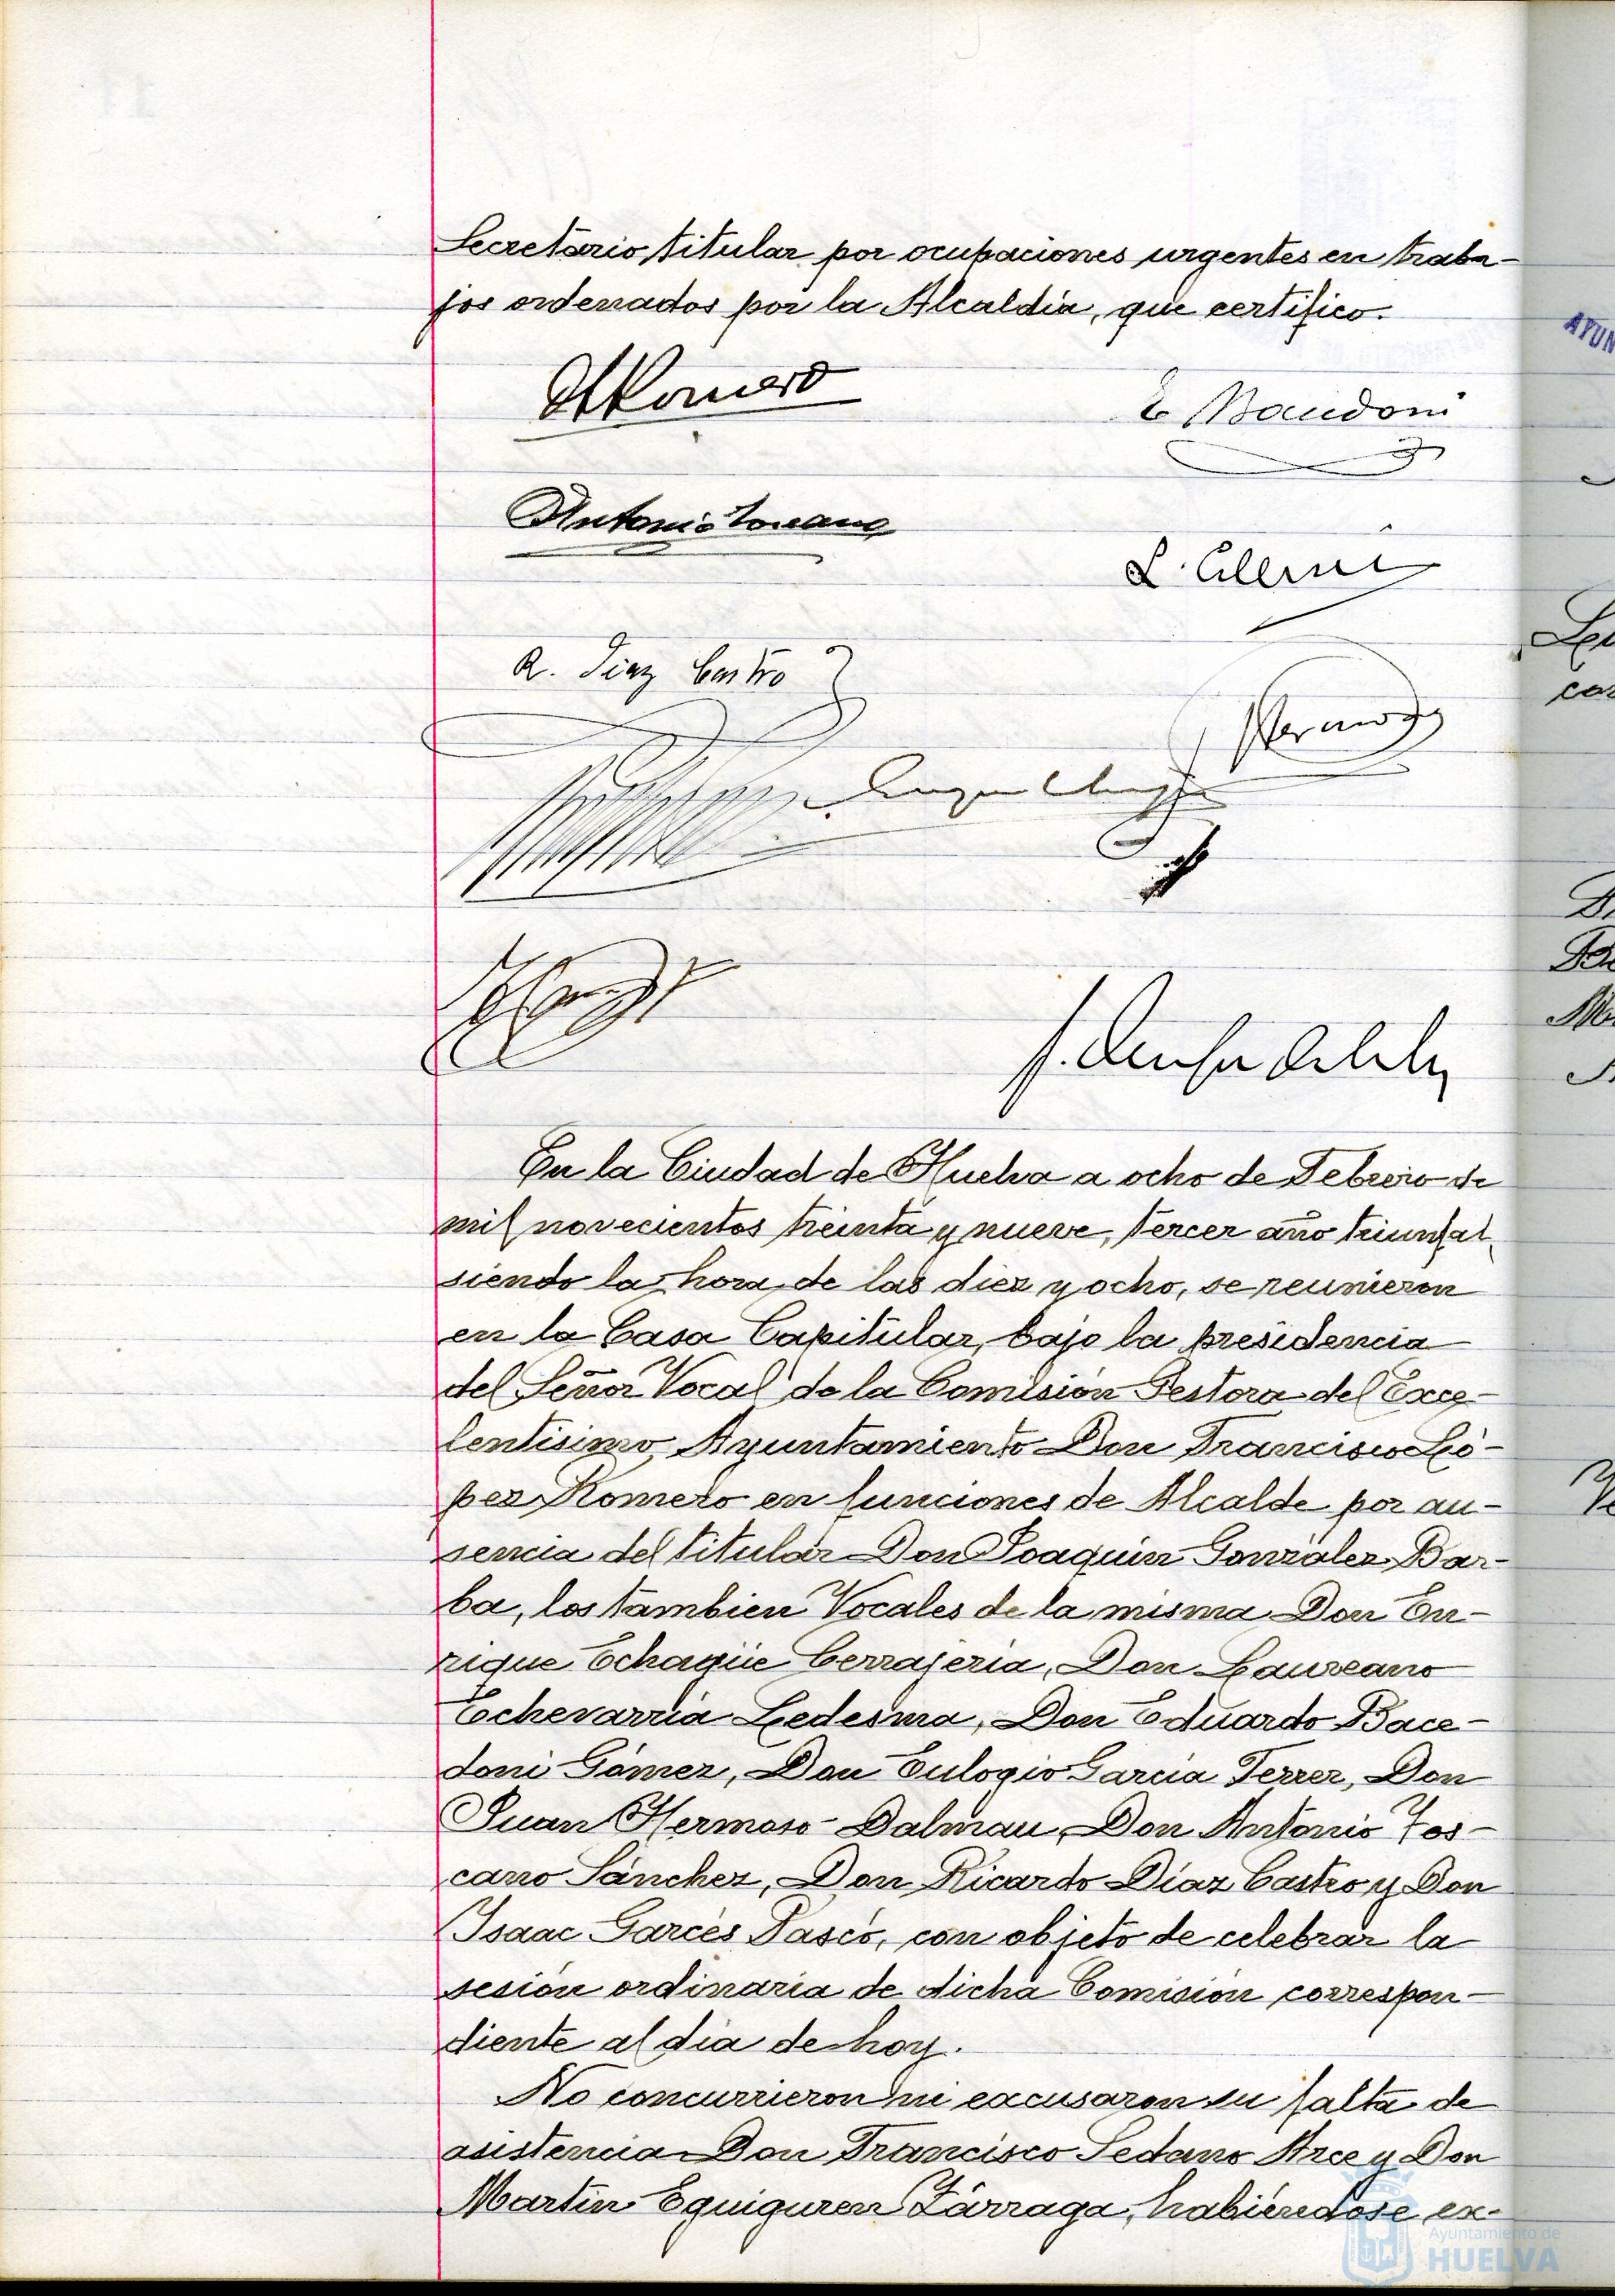 Secretario titular por ocupaciones urgentes en traba-
jos ordenados por la Alcaldía, que certifico.
Romero
E Bacedoni
Antonio Toscano
L. 
R. Diaz Castro
Hermoso
En la Ciudad de Huelva a ocho de Febrero de
mil novecientos treinta y nueve, tercer año triunfal,
siendo la hora de las diez y ocho, se reunieron
en la Casa Capitular, bajo la presidencia
del Señor Vocal de la Comisión Gestora del Exce-
lentísimo Ayuntamiento Don Francisco Ló-
pez Romero en funciones de Alcalde por au-
sencia del titular Don Joaquín González Bar-
ba, los tambien Vocales de la misma Don En-
rique Echagüe Cerrajería, Don Laureano
Echevarría Ledesma, Don Eduardo Bace-
doni Gómez, Don Eulogio García Ferrer, Don
Juan Hermoso Dalmau, Don Antonio Tos-
cano Sánchez, Don Ricardo Díaz Castro y Don
Isaac Garcés Pascó, con objeto de celebrar la
sesión ordinaria de dicha Comisión correspon-
diente al día de hoy.
No concurrieron ni excusaron su falta de
asistencia Don Francisco Sedano Arce y Don
Martín Eguiguren Zárraga, habiéndose ex-
Ayuntamiento de
HUELVA